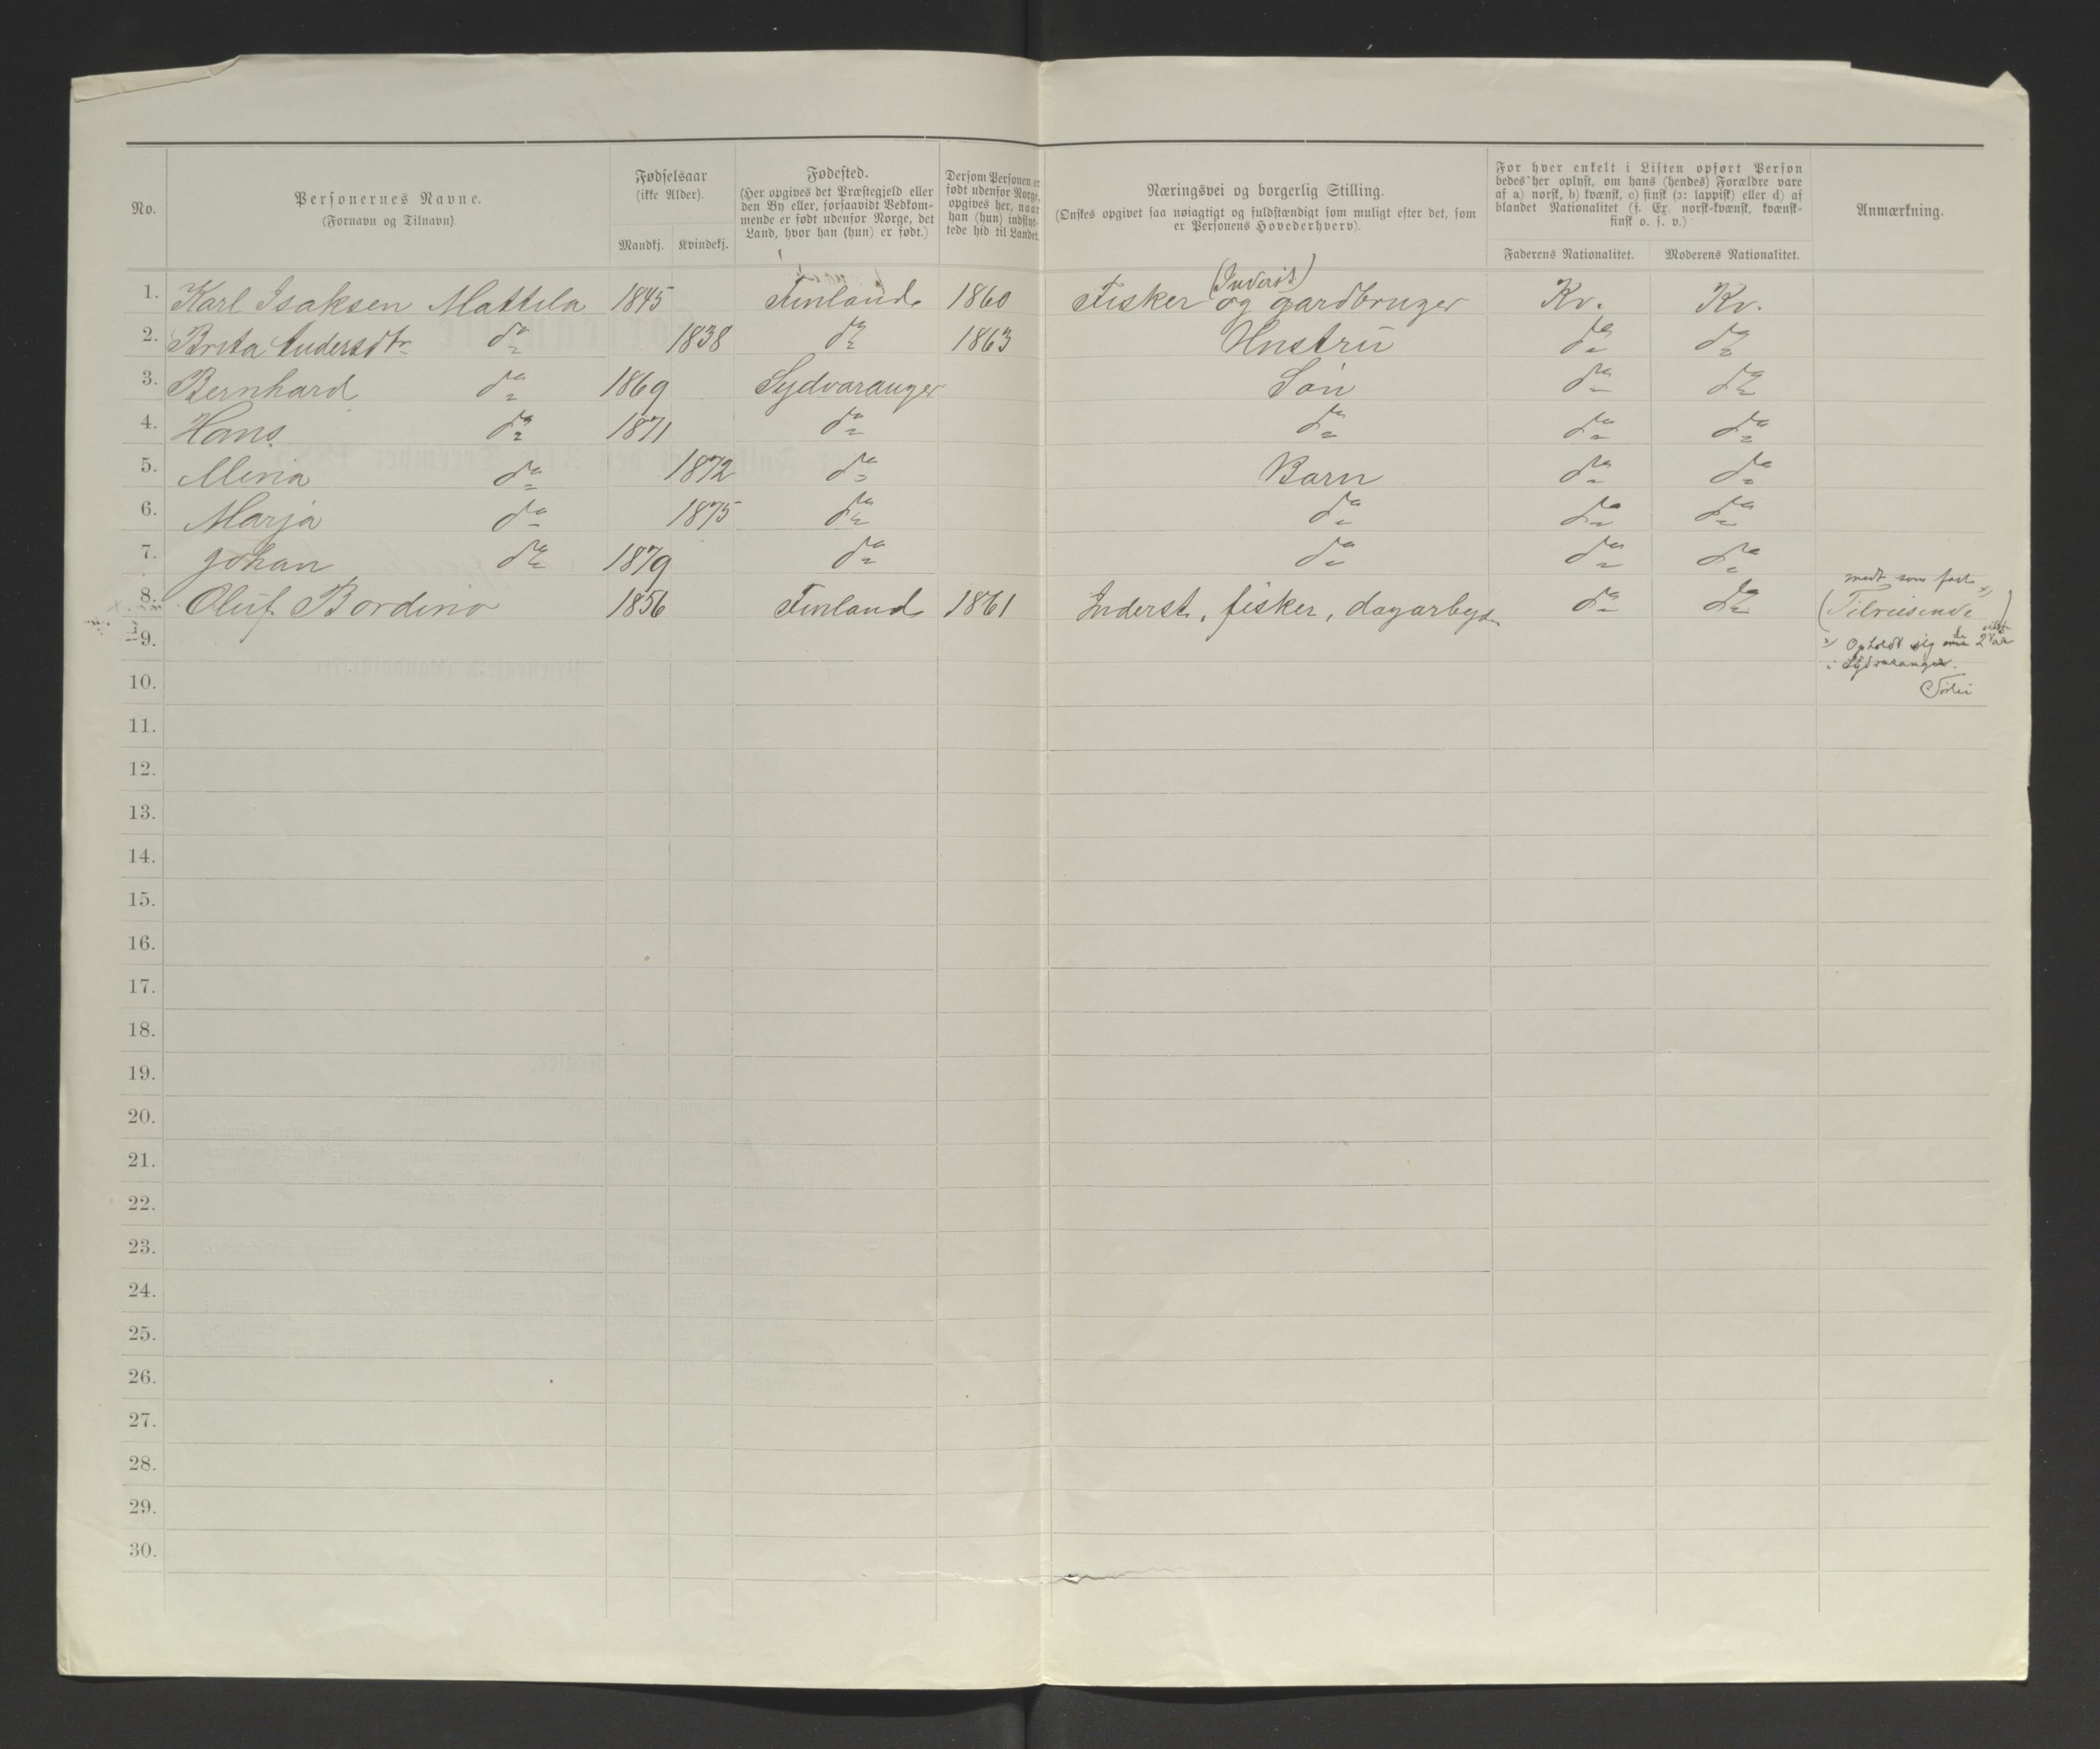 No.
Personernes Navne.
(Fornavn og Tilnavn).
Fødselsaar
(ikke Alder).
Mandkj. Kvindekj.
Fødested.
(Her opgives det Præstegjeld eller
den By eller, forsaavidt Vedkom-
mende er født udenfor Norge, det
Land, hvor han (hun) er født.)
Dersom Personen er
født udenfor Norge,
opgives her, naar
han (hun) indflyt-
tede hid til Landet.
Næringsvei og borgerlig Stilling.
(Ønskes opgivet saa nøiagtigt og fuldstændigt som muligt efter det, som
er Personens Hovederhverv).
For hver enkelt i Listen opført Person
bedes her oplyst, om hans (hendes) Forældre vare
af a) norsk, b) kvænsk, c) finsk (ɔ: lappisk) eller d) af
blandet Nationalitet (f. Ex. norsk-kvænsk, kvænsk-
finsk o. s. v.)
Faderens Nationalitet. Moderens Nationalitet.
Anmærkning.
(Inderst)
1. Karl Isaksen Mattila 1845 Finland 1860 Fisker og gardbruger Kv. Kv.
2. Brita Andersdtr do 1838 do 1863 Hustru do do
3. Bernhard do 1869 Sydvaranger Søn do do
4. Hans do 1871 do do do do
5. Mina do 1872 do Barn do do
6. Marja do 1875 do do do do
7. Johan do 1879 do do do do
8. Oluf Bordino 1856 Finland 1861 Inderst, fisker, dagarbejd. do do (Tilreisende)
9. x) Opholdt sig de 2 aar
i Sydvaranger.
10.
11.
12.
13.
14.
15.
16.
17.
18.
19.
20.
21.
22.
23.
24.
25.
26.
27.
28.
29.
30.